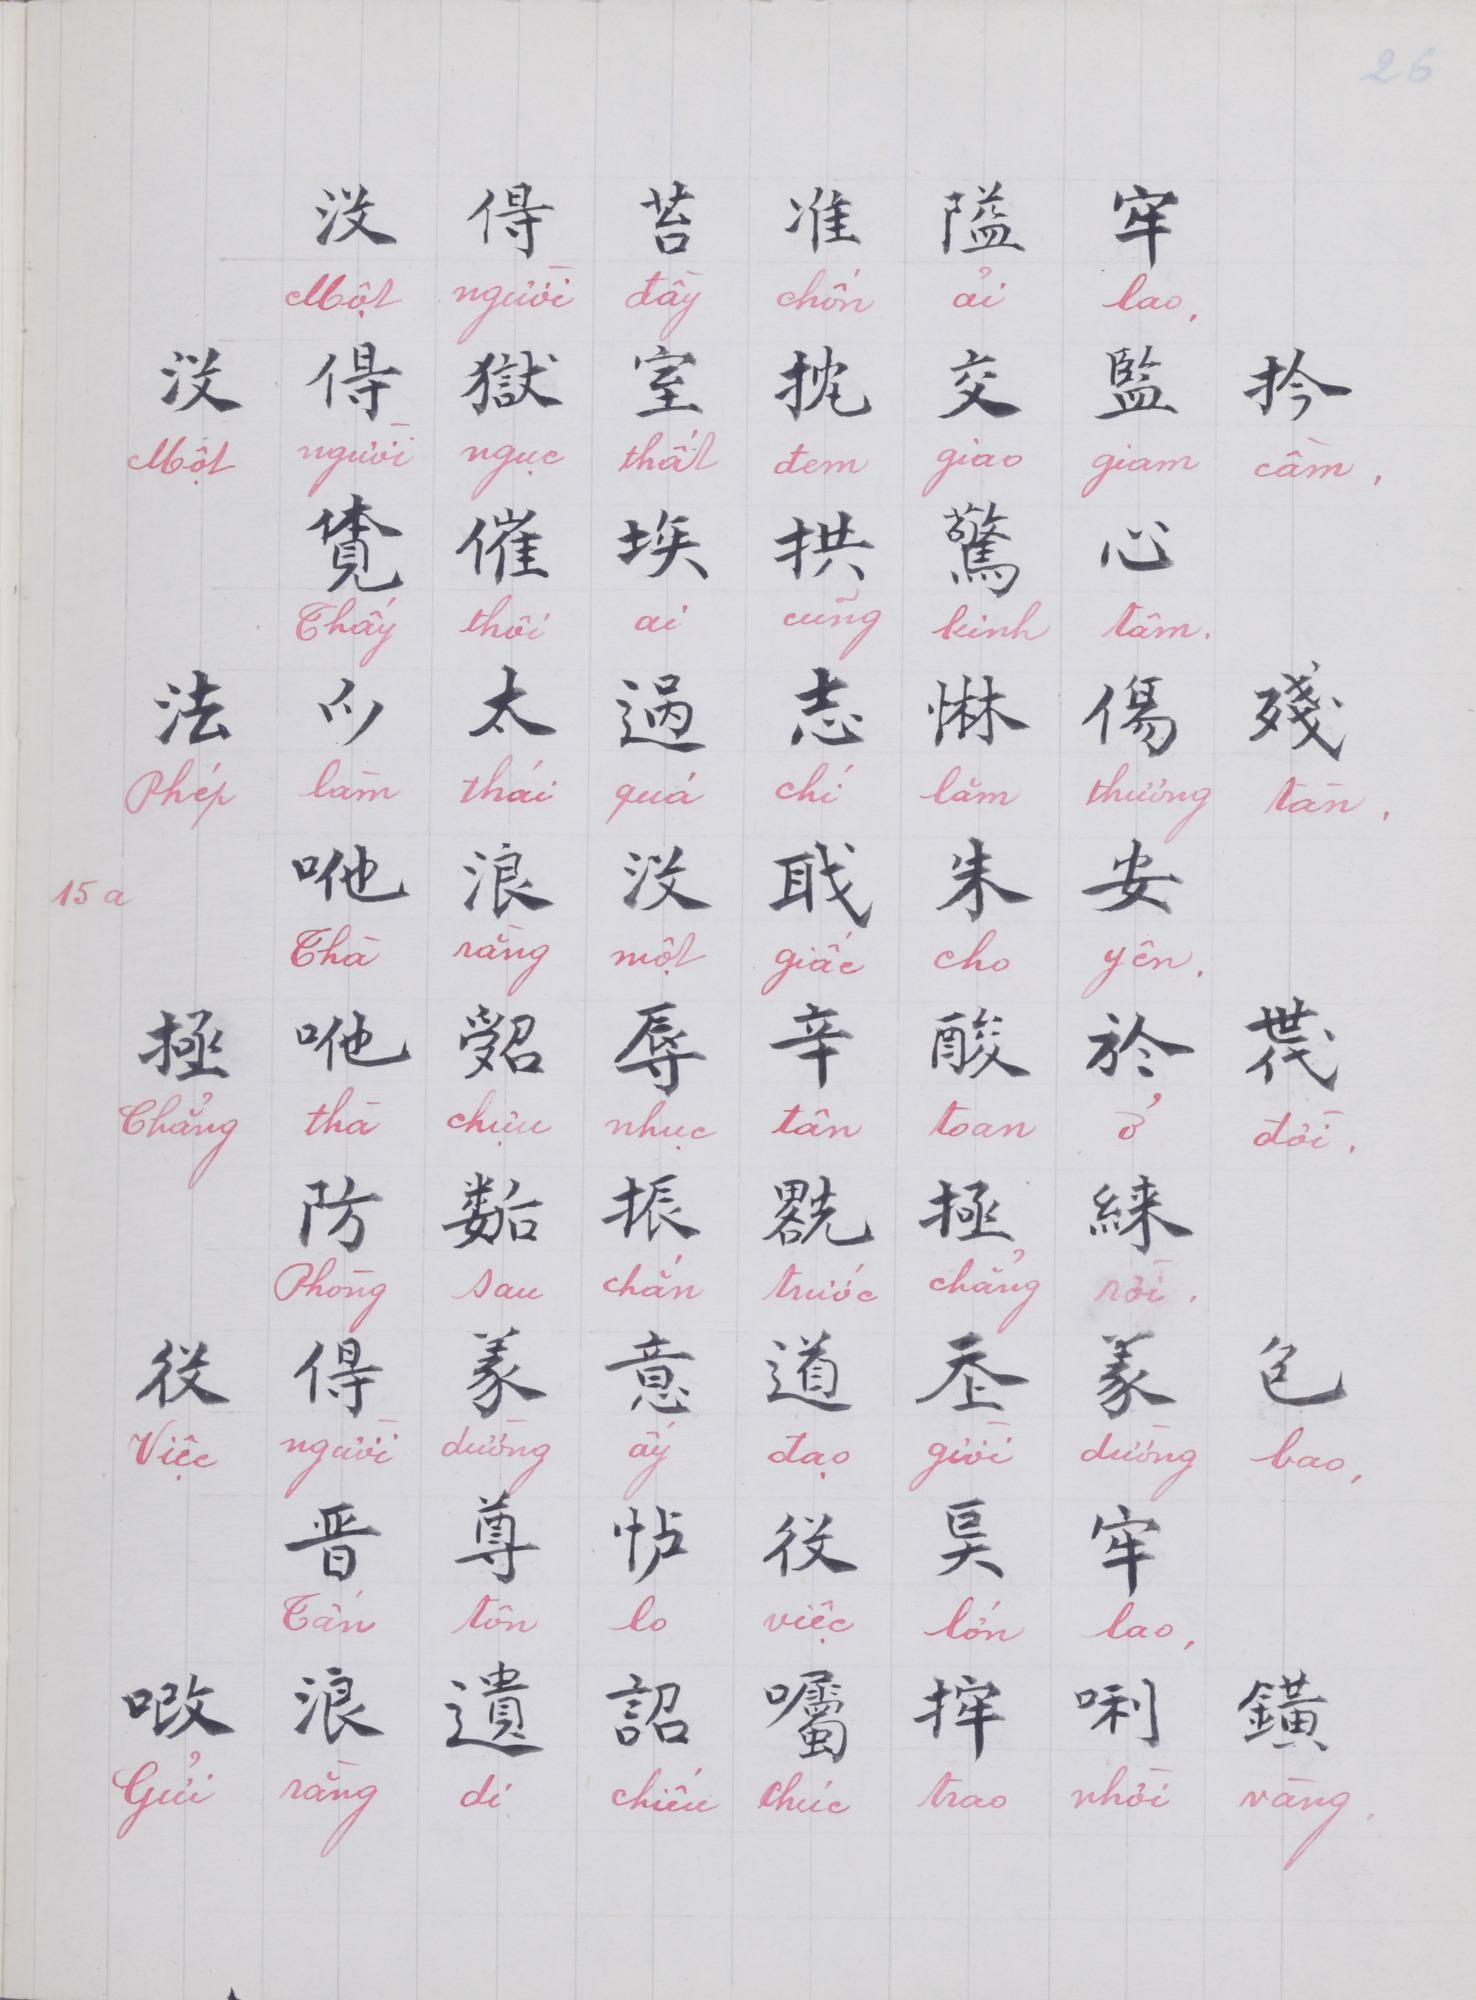 26
沒 㝵 苔 准 隘 牢
Một người đầy chốn ải lao,
沒 㝵 獄 室 抌 交 監 扲
Một người ngục thất đem giao giam cầm,
覧 催 埃 拱 驚 心
Thấy thôi ai cũng kinh tâm.
法 𪜀 太 過 志 惏 傷 殘
Phép làm thái quá chí lắm thương tàn,
咃 浪 沒 聀 朱 安
15a
Thà rằng một giấc cho yên.
極 咃 辱 辛 酸 於
Chẳng thà chịu nhục tân toan ở đời.
防 振 極 練
Phòng sau chắn trước chẳng rời.
役 㝵 意 道 包
Việc người dường ấy đạo giời dường bao,
晋 尊 怗 役 牢
Tấn tôn lo việc lớn lao,
浪 遺 詔 囑 唎 鐄
Gửi rằng di chiếu chúc trao nhời vàng.